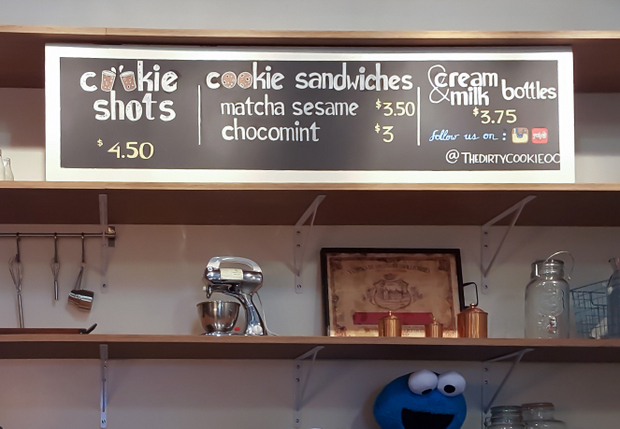 cookie shots
$4.50
cookie sandwiches
matcha sesame $3.50
chocomint $3
cream & milk bottles
$3.75
follow us on :
@THEDIRTYCOOKIEOC